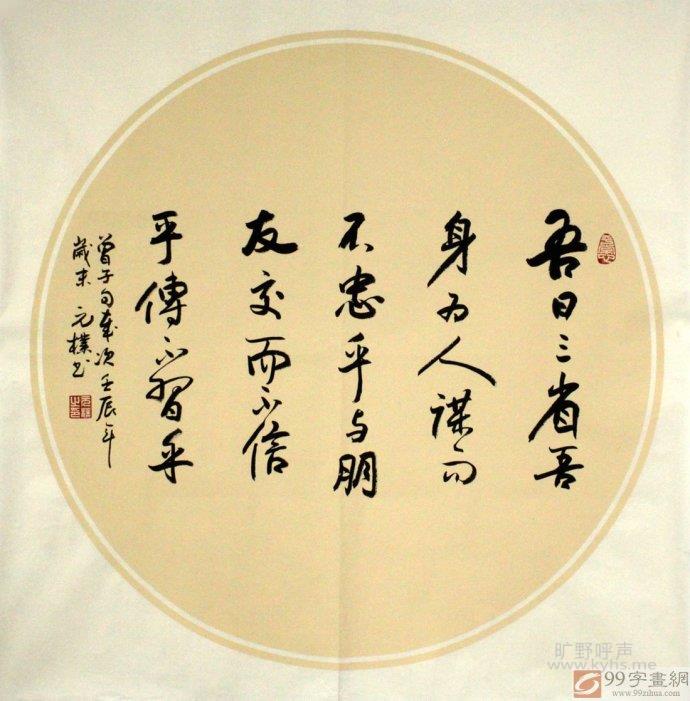 吾日三省吾
身为人谋而
不忠乎与朋
友交而不信
乎傳不習乎
曾子句歲次壬辰年
歲末 元樸书
旷野呼声
www.kyhs.me
99字畫網
www.99zihua.com